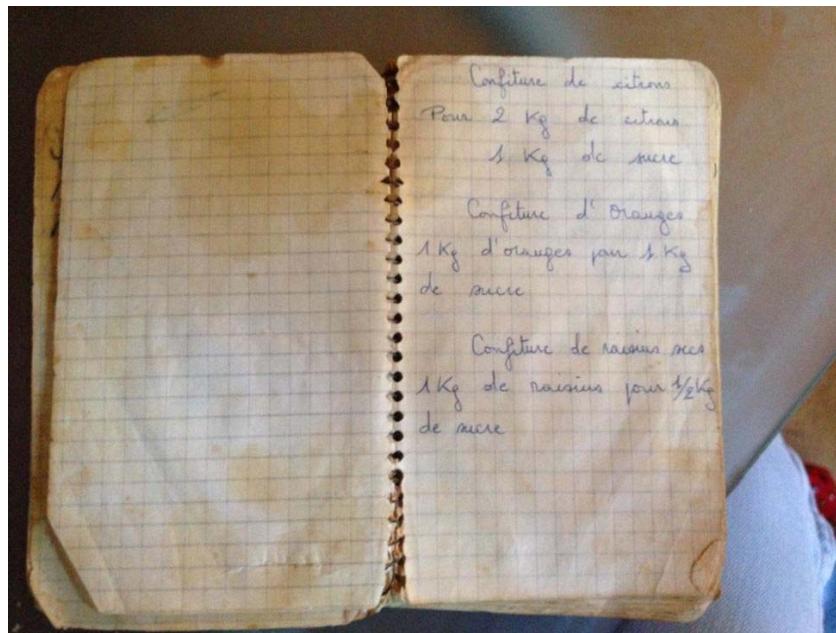 Confiture de citrons
Pour 2 Kg de citrons
1 Kg de sucre
Confiture d'Oranges
1 Kg d'oranges pour 1 Kg
de sucre
Confiture de raisins secs
1 Kg de raisins pour 1/2 Kg
de sucre